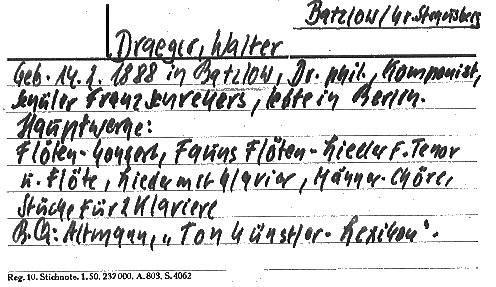 Batzlow/Kr. Strausberg
Draeger, Walter
Geb. 14.2. 1888 in Batzlow, Dr. phil., Komponist,
Schüler Franz Schrekers, lebte in Berlin.
Hauptwerke:
Flöten-Konzert, Fauns Flöten-Lieder f. Tenor
u. Flöte, Lieder mit Klavier, Männer-Chöre,
Stücke für 2 Klaviere
B.Q: Altmann, „Tonkünstler-Lexikon".
Reg. 10. Stichnote. 1. 50. 232000. A. 803. S. 4062